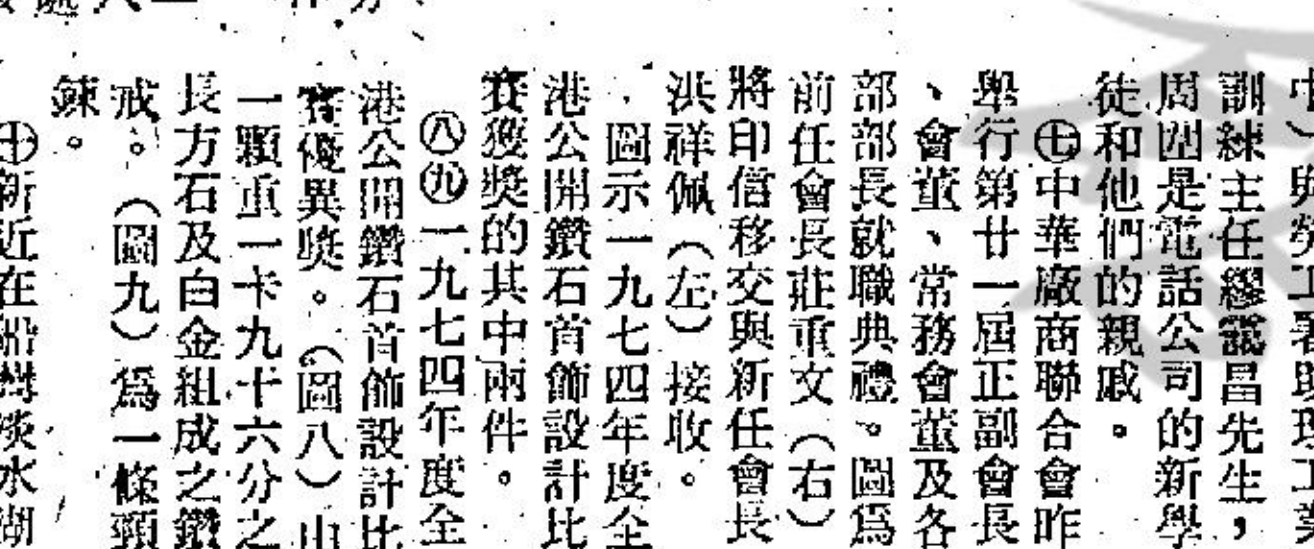 訓練主任繆 昌先生,
周圍是電話公司的新學
徒和他們的親戚。
㊆中華廠商聯合會昨
舉行第廿一屆正副會長
、會董、常務會董及各
部部長就職典禮。圖爲
前任會長莊重文(右)
將印信移交與新任會長
洪祥佩(左)接收。
圖示一九七四年度全
港公開鑽石首飾設計比
賽獲獎的其中兩件。
㊇㊈一九七四年度全
港公開鑽石首飾設計比
賽優異獎。(圖八)由
一顆重一卡九十六分之
長方石及白金組成之鑽
戒。(圖九)爲一條頸
鍊。
㊉新近在 淡水湖